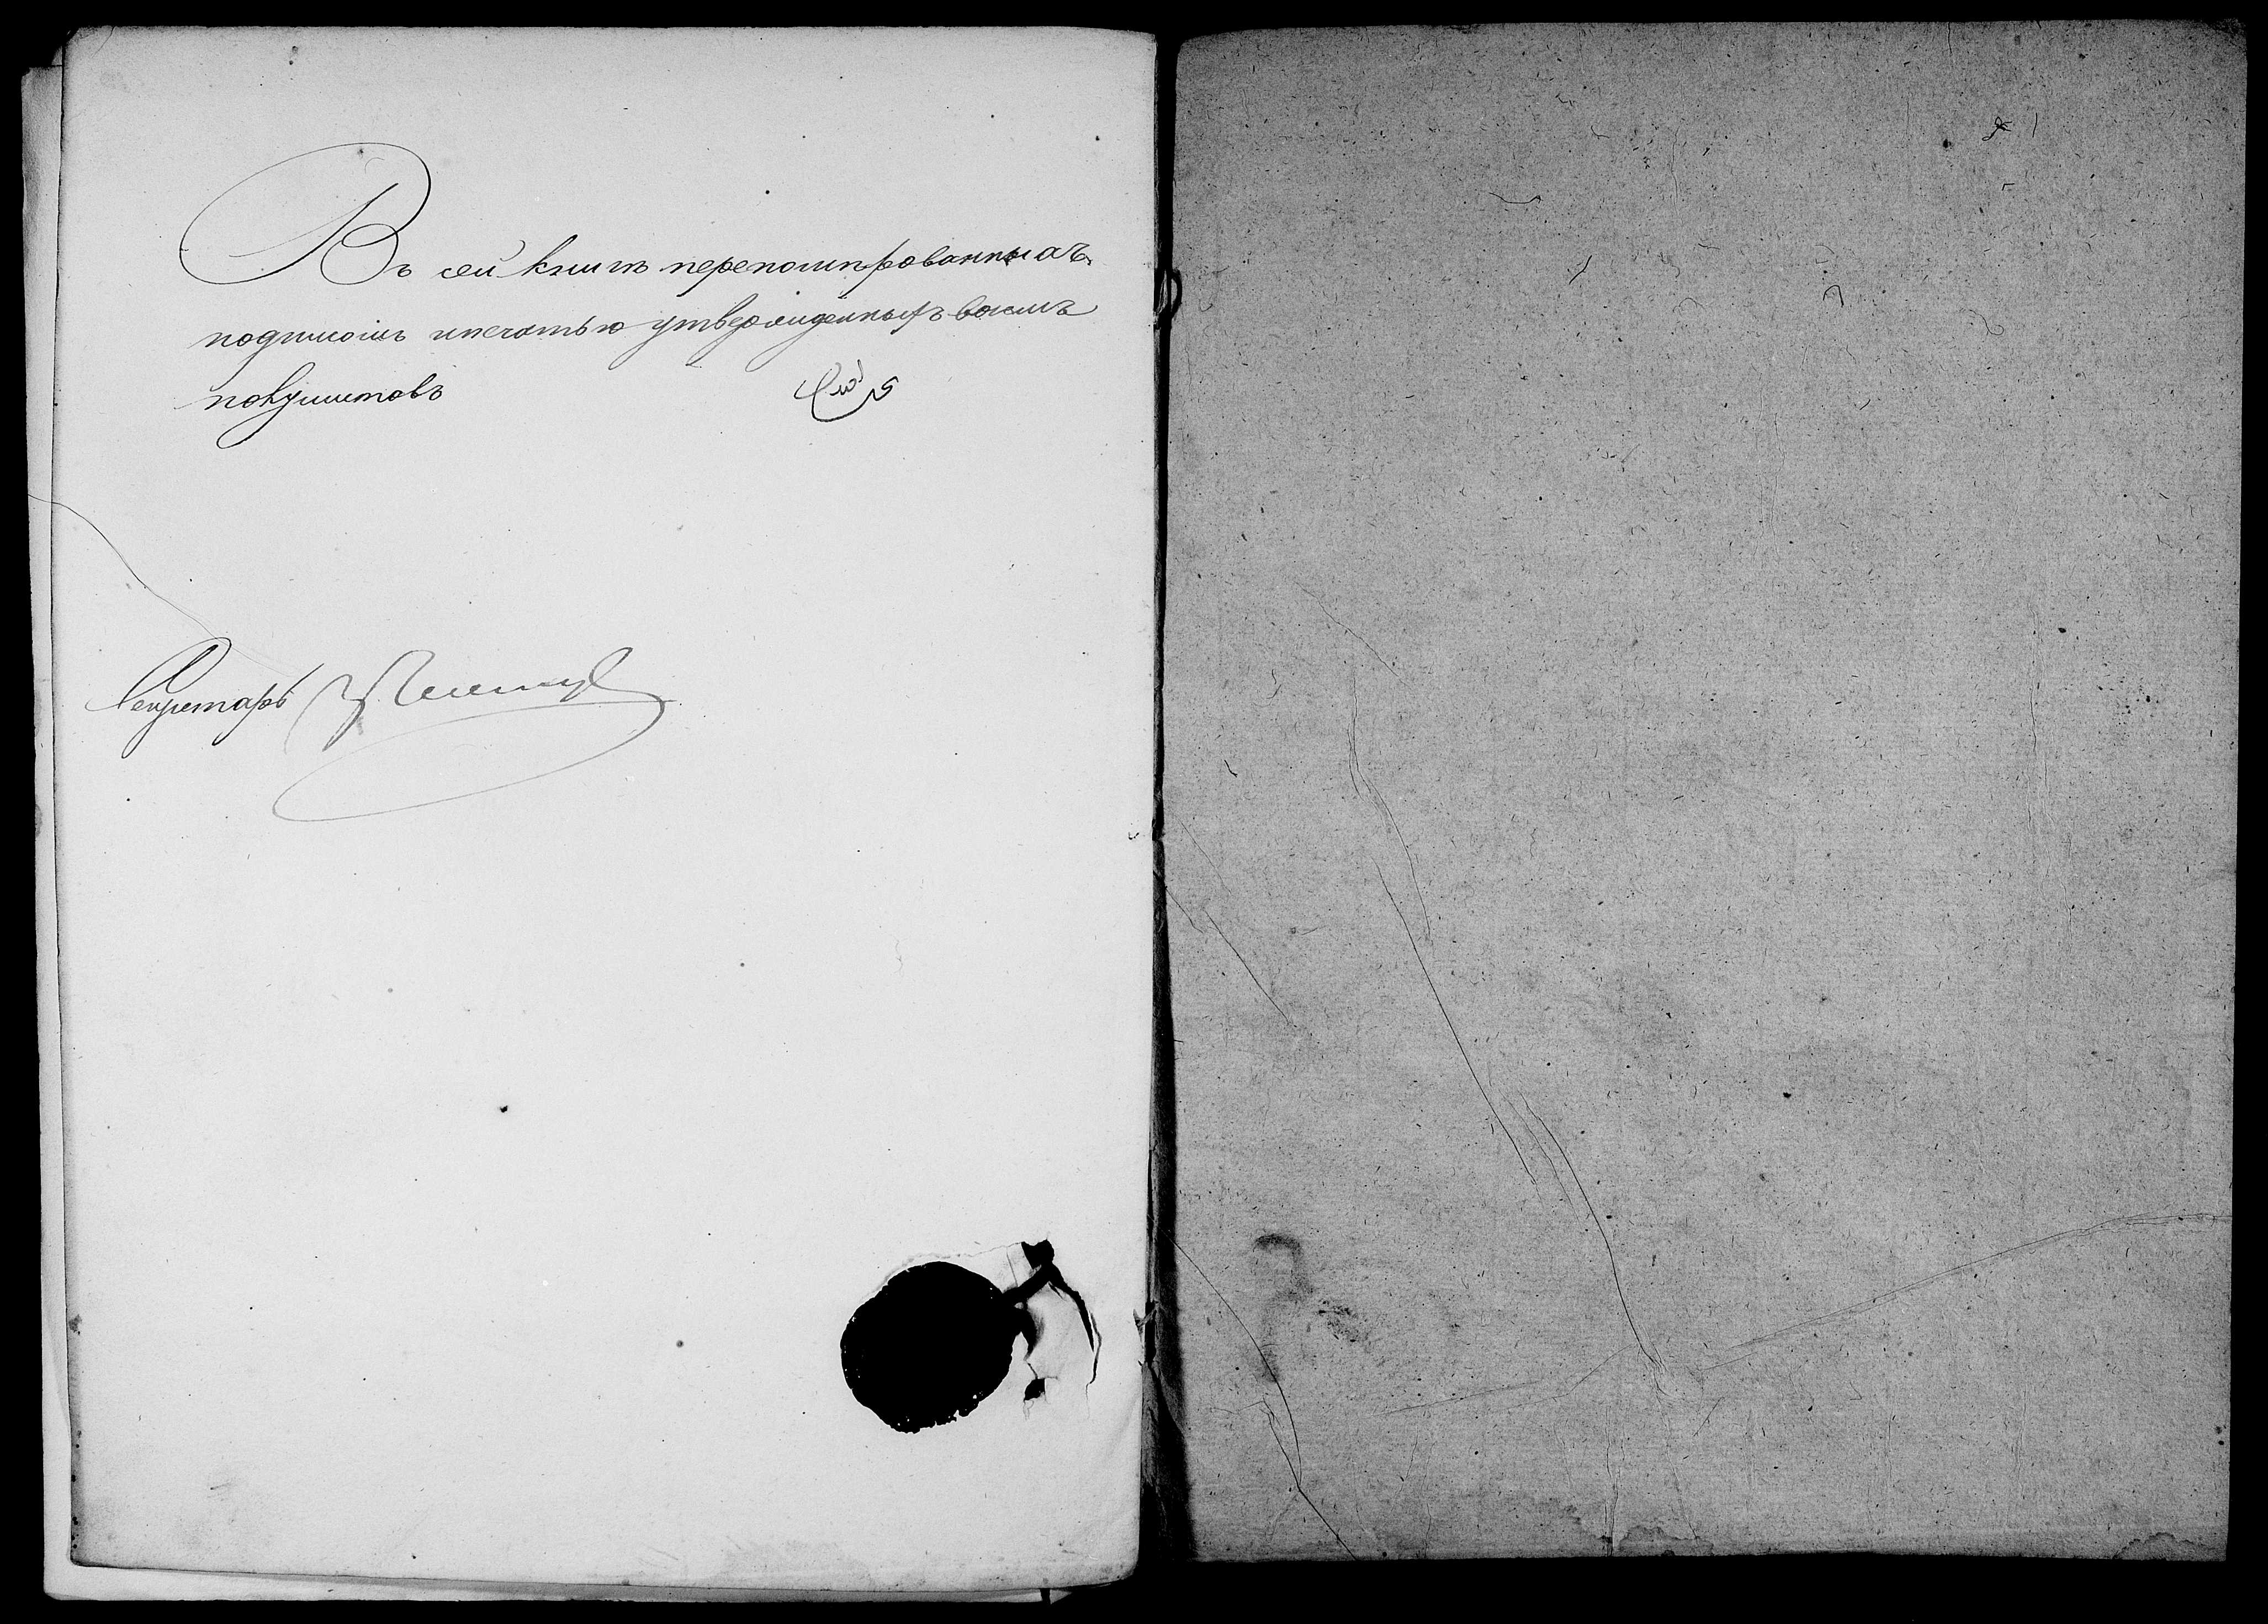 Въ сей книгѣ перенумерованныхъ
подписью и печатью утвержденныхъ восемь
полулистовъ
Секретарь